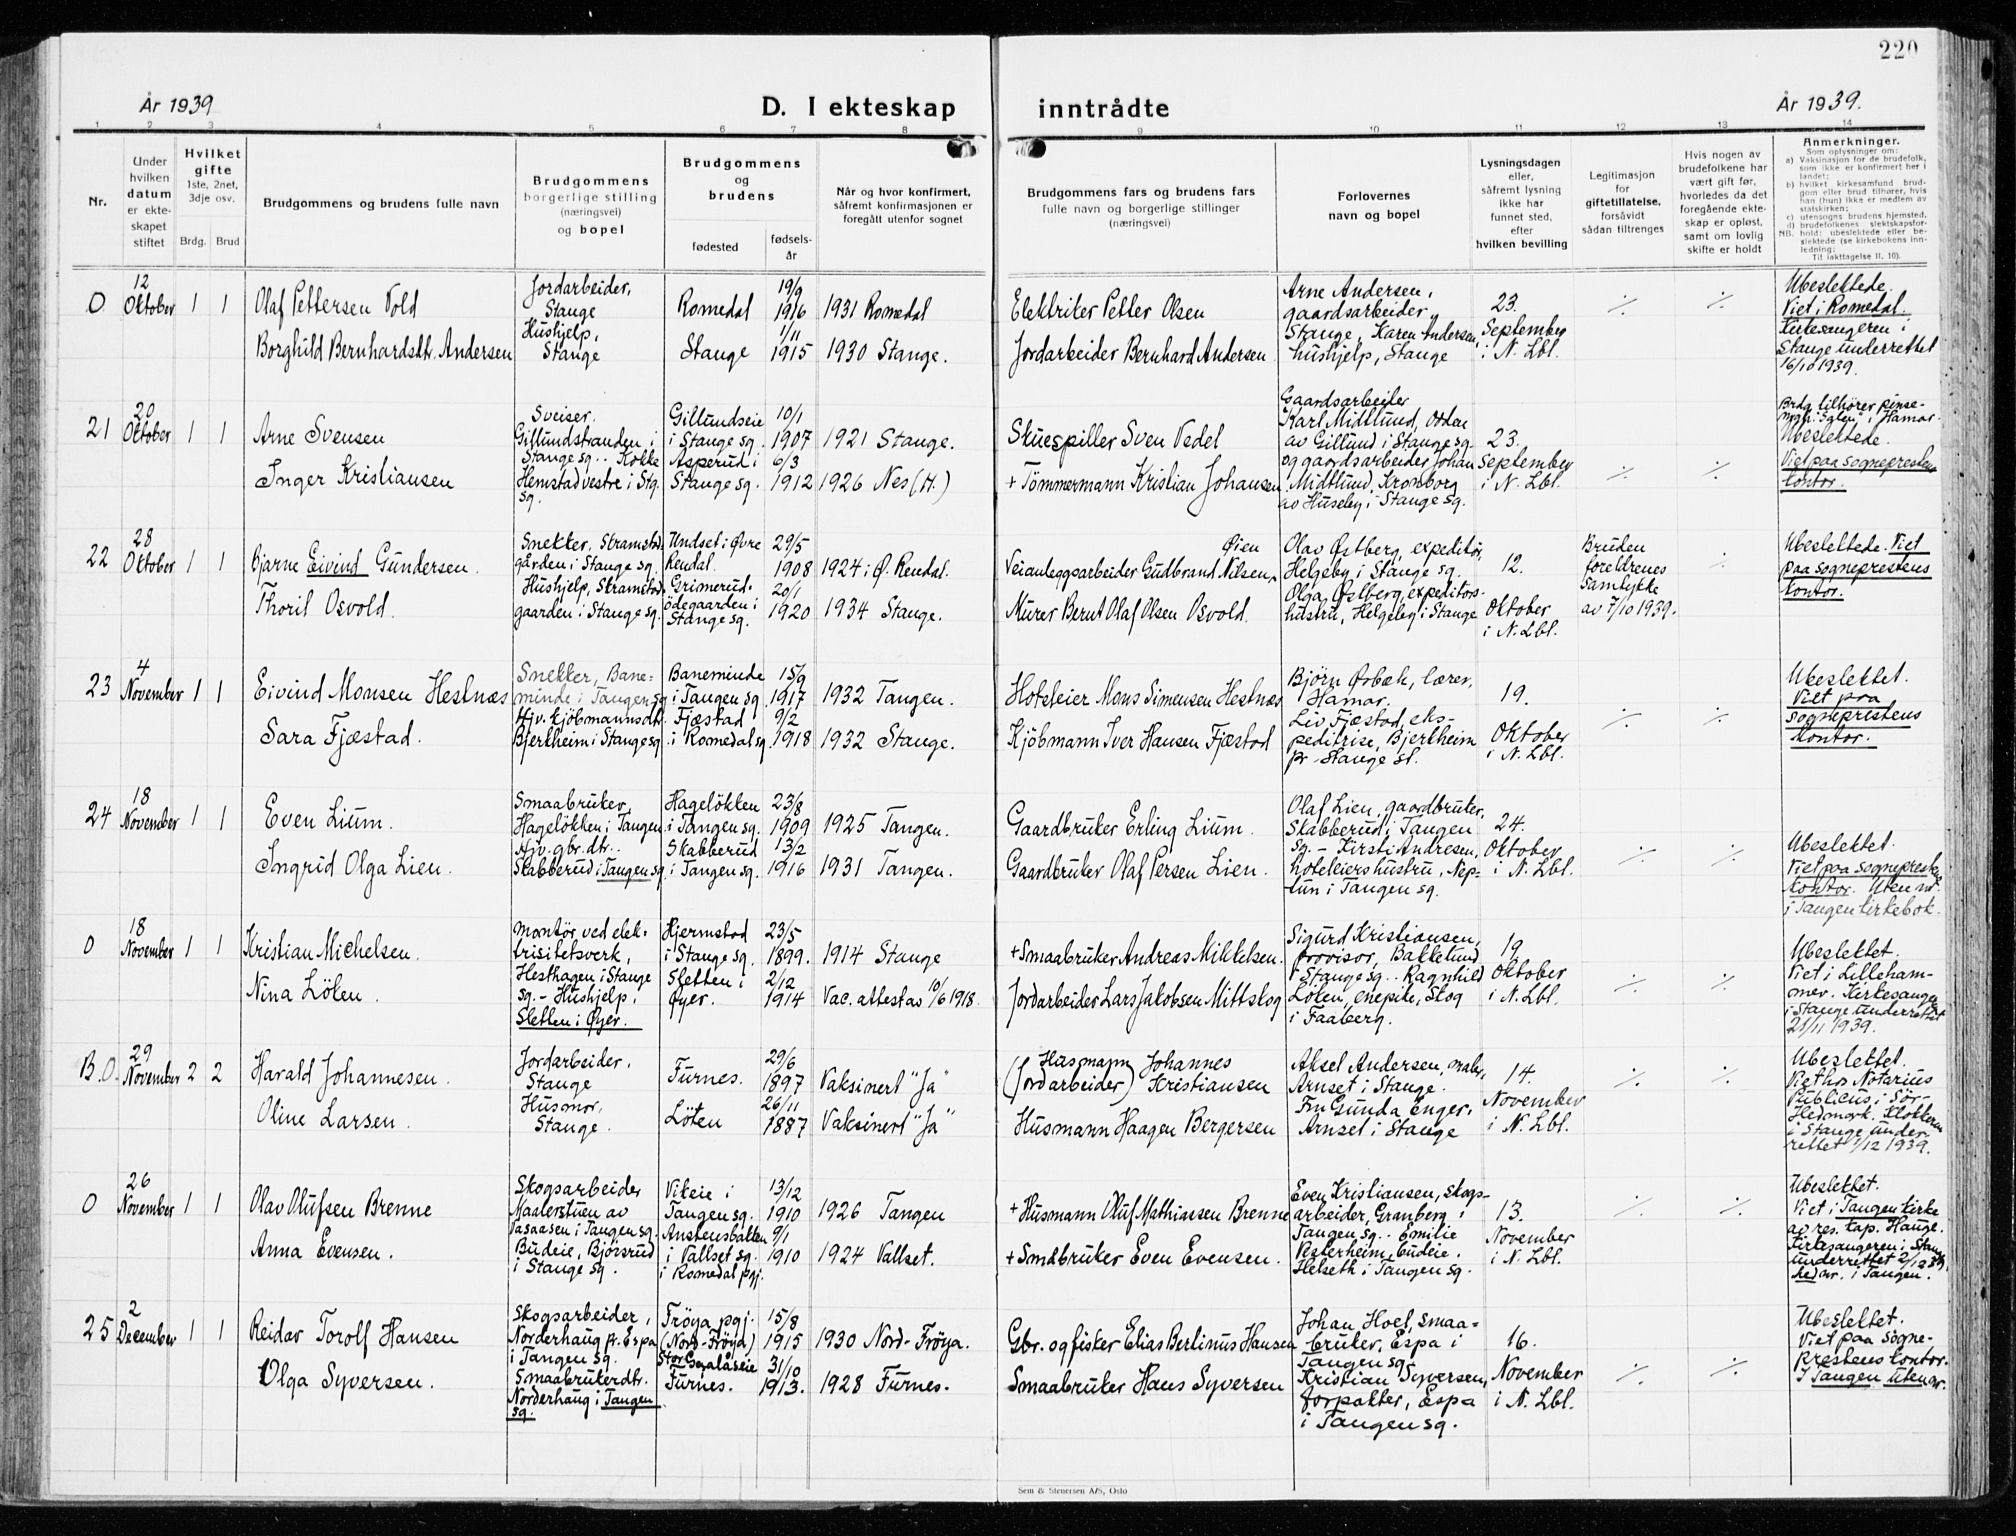 220
År 1939
D. I ekteskap
inntrådte
År 1939.
1 2 3 4 5 6 7 8 9 10 11 12 13 14
Nr.
Under
hvilken
datum
er ekte-
skapet
stiftet
Hvilket
gifte
1ste, 2net,
3dje osv.
Brdg. Brud
Brudgommens og brudens fulle navn
Brudgommens
borgerlige stilling
(næringsvei)
og bopel
Brudgommens
og
brudens
fødested
fødsels-
år
Når og hvor konfirmert,
såfremt konfirmasjonen er
foregått utenfor sognet
Brudgommens fars og brudens fars
fulle navn og borgerlige stillinger
(næringsvei)
Forlovernes
navn og bopel
Lysningsdagen
eller,
såfremt lysning
ikke har
funnet sted,
efter
hvilken bevilling
Legitimasjon
for
giftetillatelse,
forsåvidt
sådan tiltrenges
Hvis nogen av
brudefolkene har
vært gift før,
hvorledes da det
foregående ekte-
skap er opløst,
samt om lovlig
skifte er holdt
Anmerkninger.
Som oplysninger om:
a) Vaksinasjon for de brudefolk,
som ikke er konfirmert her i
landet;
b) hvilket kirkesamfund brud-
gom eller brud tilhører, hvis
han (hun) ikke er medlem av
statskirken;
c) utensogns brudens hjemsted.
d) brudefolkenes slektskapsfor-
NB. hold: ubeslektede eller be-
slektede (se kirkebokens inn-
ledning;
Til iakttagelse II, 10).
0
12
Oktober
1 1
Olaf Pettersen Vold
Borghild Bernhardsdtr. Andersen
Jordarbeider,
Stange
Hushjelp,
Stange
Romedal
Stange
19/9
1916
1/11
1915
1931 Romedal
1930 Stange.
Elektriker Petter Olsen
Jordarbeider Bernhard Andersen
Arne Andersen,
gaardsarbeider,
Stange, Karen Andersen,
hushjelp, Stange
23.
September
i N. Lbl.
Ubeslektede.
Viet i Romedal.
Kirkesangeren i
Stange underrettet
16/10 1939.
21
20
Oktober
1 1
Arne Svensen
Inger Kristiansen
Sveiser.
Gillundstranden i
Stange sg.. Kokke
Hemstad vestre i Stg.
sg.
Gillundseie
i Stange sg.
Asperud i
Stange sg.
10/1
1907
6/3
1912
1921 Stange.
1926 Nes (H.)
Skuespiller Sven Vedel
+ Tömmermann Kristian Johansen
Gaardsarbeider
Karl Midtlund, Oddae
av Gillund i Stange sg.
og gaardsarbeider Johan
Midtlund, Kronborg
av Huseby i Stange sg.
23.
September
i N. Lbl.
Brdg. tilhører pinse-
mgh. "Salen" i Hamar.
Ubeslektede.
Viet paa sogneprestens
kontor.
22
28
Oktober
1 1
Bjarne Eivind Gundersen.
Thoril Osvold.
Snekker, Stramstad-
gården i Stange sg.
Hushjelp, Stramstad-
gaarden i Stange sg.
Undset i Øvre
Rendal.
Grimerud-
ödegaarden i
Stange sg.
29/5
1908
20/1
1920
1924 i Ø. Rendal.
1934 Stange.
Øien
Veianleggsarbeider Gudbrand Nilsen,
Murer Bernt Olaf Olsen Osvold.
Olav Østberg, expeditör,
Helgeby i Stange sg.
Olga Østberg, expeditörs-
hustru, Helgeby i Stange
12.
Oktober
i N. Lbl.
Bruden
foreldrenes
samtykke
av 7/10 1939.
Ubeslektede. Viet
paa sogneprestens
kontor.
23
4
November
1 1
Eivind Monsen Hestnæs
Sara Fjæstad.
Snekker, Bane=
minde i Tangen sg.
Hjv. kjöbmannsdtr.
Bjerkheim i Stange sg.
Baneminde
i Tangen sg.
Fjæstad
i Romedal sg.
15/9
1917
9/2
1918
1932 Tangen.
1932 Stange.
Hoteleier Mons Simensen Hestnæs
Kjöbmann Iver Hansen Fjæstad
Björn Ørbæk, lærer,
Hamar.
Liv Fjæstad, eks-
peditrise, Bjerkheim
pr Stange st.
19.
Oktober
i N. Lbl.
Ubeslektet.
Viet paa
sogneprestens
kontor.
24
18
November
1 1
Even Lium.
Ingrid Olga Lien.
Smaabruker,
Hagelökken i Tangen
Hjv. gbr. dtr..
Skabberud i Tangen sg.
Hagelökken
i Tangen sg.
Skabberud
i Tangen sg.
23/8
1909
13/2
1916
1925 Tangen.
1931 Tangen.
Gaardbruker Erling Lium.
Gaardbruker Olaf Persen Lien.
Olaf Lien, gaardbruker,
Skabberud i Tangen
sg. - Kirsti Andresen,
hoteleiershustru, Nep-
tun i Tangen sg.
24.
Oktober
i N. Lbl.
Ubeslektet.
Viet paa sogneprestens
kontor. Uten nr.
i Tangen kirkebok.
0
18
November
1 1
Kristian Michelsen.
Nina Löken.
Montör ved elek-
trisitetsverk,
Hesthagen i Stange
sg. - Hushjelp,
Sletten i Øyer.
Hjermstad
i Stange sg.
Sletten i
Øyer.
23/5
1899.
2/12
1914
1914 Stange
Vac. attest av 10/6 1918.
+ Smaabruker Andreas Mikkelsen.
Jordarbeider Lars Jakobsen Mittskog
Sigurd Kristiansen,
provisor, Bakkelund
i Stange sg.. Ragnhild
Löken, enepike, Skog
i Faaberg.
19.
Oktober
i N. Lbl.
Ubeslektet.
Viet i Lilleham-
mer. Kirkesangeren
i Stange underrettet
21/11 1939.
B.O.
29
November
2 2
Harald Johannesen.
Oline Larsen.
Jordarbeider,
Stange
Husmor,
Stange.
Furnes.
Löten
29/6
1897
26/11
1887
Vaksinert "Ja"
Vaksinert "Ja"
Husmann Johannes
(Jordarbeider) Kristiansen
Husmann Haagen Bergersen
Aksel Andersen, maler,
Arnset i Stange.
Fru Gunda Enger,
Arnset i Stange
14.
November
i N. Lbl.
Ubeslektet.
Viet hos Notarius
Publicus i Sör-
Hedmark. Klokkeren
i Stange under-
rettet 1/12 1939.
0
26
November
1 1
Olav Olufsen Brenne
Anna Evensen.
Skogsarbeider
Maalerstuen av
Vasaasen i Tangen sg.
Budeie, Bjösrud
i Stange sg.
Vikeie i
Tangen sg.
Anstensbakken
i Vallset sg.
i Romedal pgj.
13/12
1910
9/1
1910
1926 Tangen
1924 Vallset.
+ Husmann Oluf Mathiassen Brenne
+ Småbruker Even Evensen.
Even Kristiansen, skogs-
arbeider, Granberg i
Tangen sg.. Emilie
Vesterheim, budeie.
Helseth i Tangen sg.
13.
November
i N. Lbl.
Ubeslektet.
Viet i Tangen kirke
av res. kap. Hauge.
Kirkesangeren i Stange
underrettet 2/12 39,
med nr. i Tangen.
25
2
December
1 1
Reidar Torolf Hansen
Olga Syversen.
Skogsarbeider,
Norderhaug pr. Espa
i Tangen sg.
Smaabrukerdtr.
Norderhaug i Tangen
sg.
Fröya pgj.
(Nord-Fröya)
Furnes.
15/8
1915
31/10
1913.
1930 Nord-Fröya.
1928 Furnes.
Gbr. og fisker Elias Berlinus Hansen
Smaabruker Hans Syversen
Johan Hoel, smaa=
bruker, Espa i
Tangen sg.
Kristian Syversen,
forpakter, Espa
i Tangen sg.
16.
November
i N. Lbl.
Ubeslektet.
Viet paa sogne-
prestens kontor.
I Tangen uten nr.
Sem & Stenersen A/S, Oslo